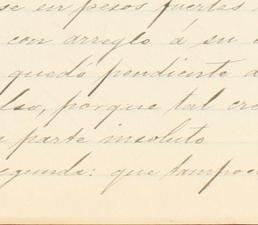 se en pesos fuertes
con arreglo á su
quedó pendiente
porque tal
parte insoluto
segunda: que tampoco